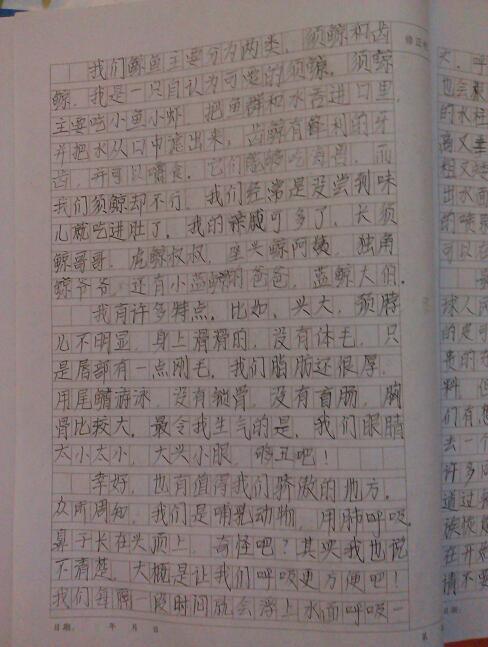 我们鲸鱼主要分为两类，须鲸和齿
鲸。我是一只自认为可爱的须鲸。须鲸
主要吃小鱼小虾，把鱼群和水吞进口里，
并把水从口中滤出来，齿鲸有锋利的牙
齿，并可以嚼食。它们吃海兽。而
我们须鲸却不行。我们经常是没尝到味
儿就吃进肚了。我的亲戚可多了，长须
鲸哥哥，虎鲸叔叔，座头鲸阿姨，独角
鲸爷爷，还有小蓝鲸的爸爸，蓝鲸大伯。
我有许多特点。比如，头大，颈脖
儿不明显，身上滑滑的，没有体毛，只
是唇部有一点刚毛，我们脂肪还很厚，
用尾鳍游泳，没有锁骨，没有盲肠，胸
骨比较大。最令我生气的是，我们眼睛
太小太小，大头小眼，够丑吧！
幸好，也有值得我们骄傲的地方。
众所周知，我们是哺乳动物，用肺呼吸，
鼻子长在头顶上，奇怪吧？其实我也说
不清楚，大概是让我们呼吸更方便吧！
我们每隔一段时间就会浮上水面呼吸一
日期： 年 月 日
第
修正
大，呼
也会
的水柱
高又
粗又
出水面
的喷
可以
球人
的是可
贵的
料，但
们有
去一个
许多
通过
在开
请不要
日期：